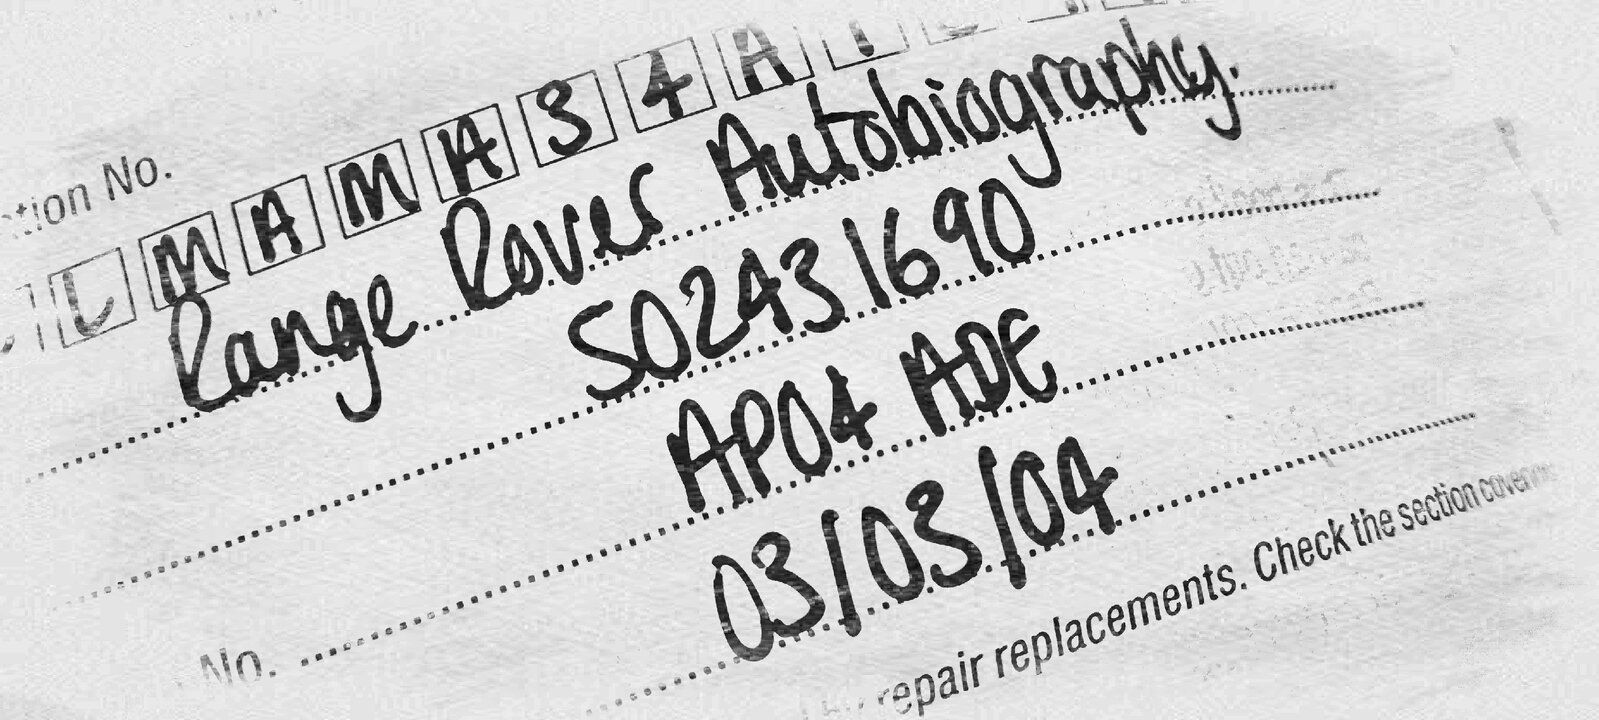 tion No.
L M A M A 3 4 A
Range Rover Autobiography.
S02431690
AP04 ADE
No.
03/03/04
repair replacements. Check the section